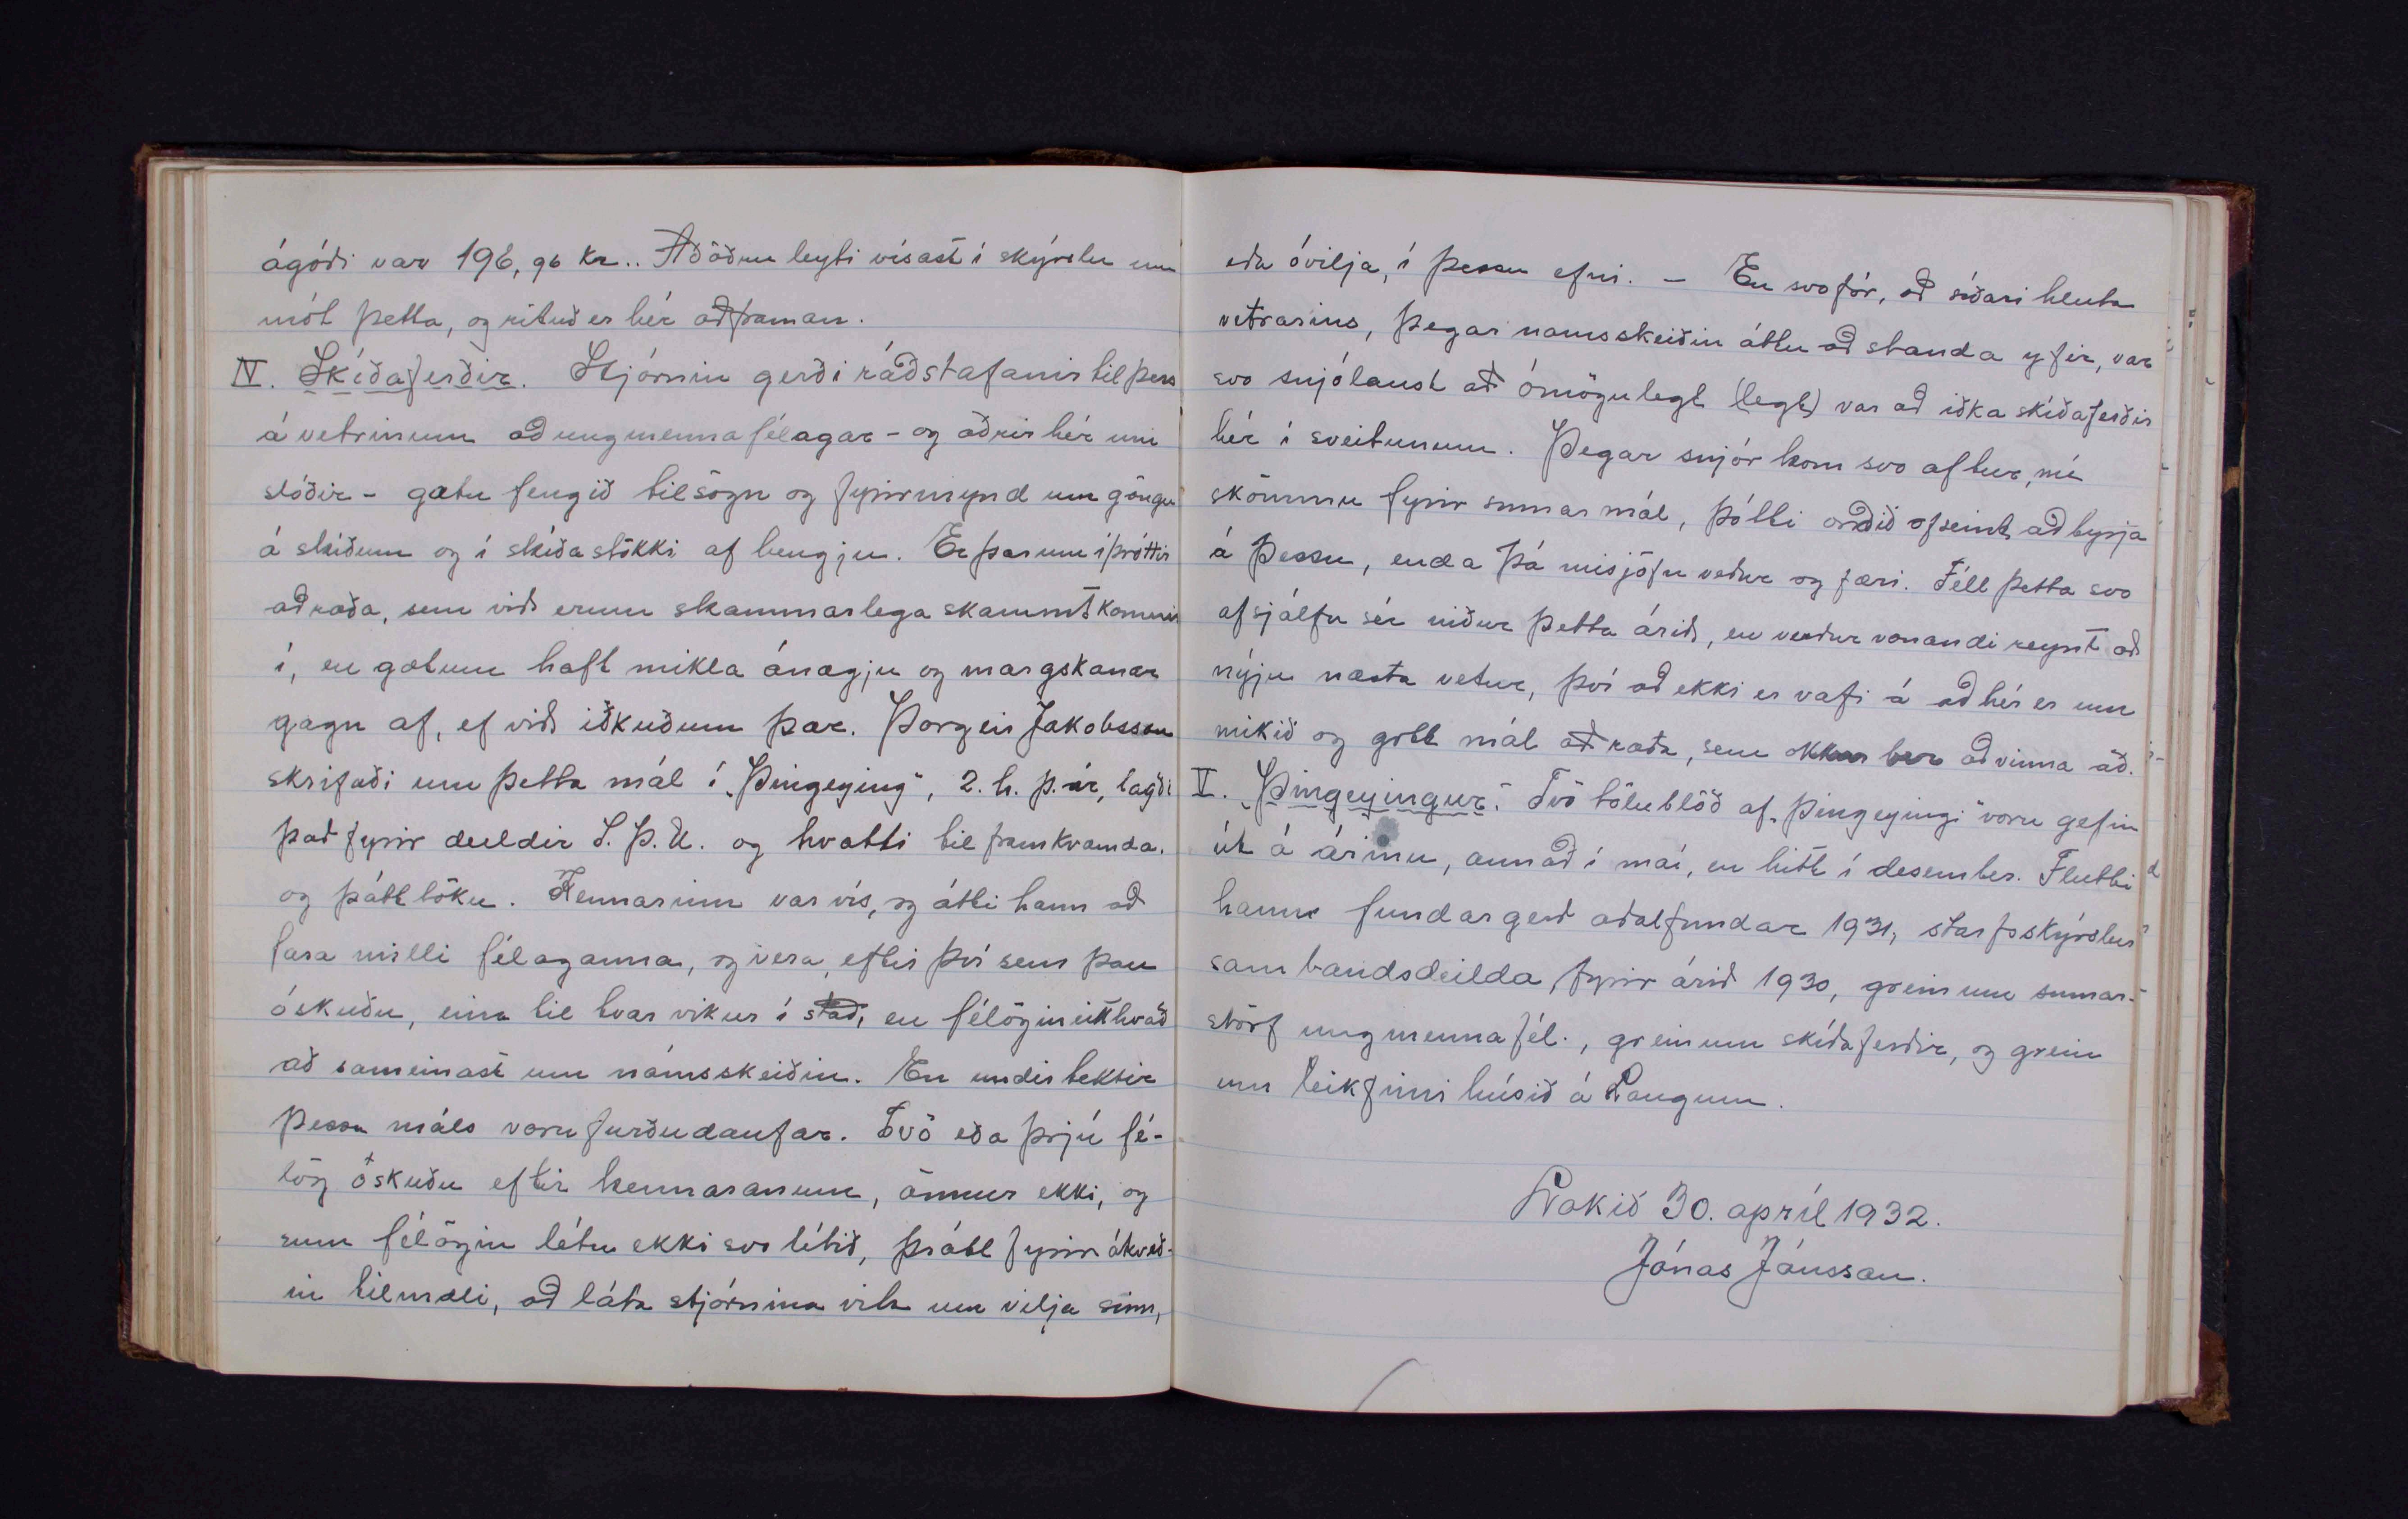 ágóði var 196,96 kr.. Að öðru leyti vísast í skýrslu um
mót þetta, og rituð er hér að framan.
IV. Skíðaferðir. Stjórnin gerði ráðstafanir til þess
á vetrinum að ungmennafélagar - og aðrir hér um
slóðir - gætu fengið tilsögn og fyrirmynd um göngu
á skíðum og í skíðastökki af hengju. Er þar um íþróttir
að ræða, sem við erum skammarlega skammt komnir
í, en gætum haft mikla ánægju og margskonar
gagn af, ef við iðkuðum þær. Þorgeir Jakobsson
skrifaði um þetta mál í „Þingeying", 2. h. þ. ár, lagði
það fyrir deildir S.Þ.U. og hvatti til framkvæmda.
og þátttöku. Kennarinn var vís, og átti hann að
fara milli félaganna, og vera, eftir því sem þau
óskuðu, eina til tvær vikur í stað, en félögin eitthvað
að sameinast um námsskeiðin. En undirtektir
þessa máls voru furðu daufar. Tvö eða þrjú fé-
lög óskuðu eftir kennaranum, önnur ekki, og
sum félögin létu ekki svo lítið, þrátt fyrir ákveð-
in tilmæli, að láta stjórnina vita um vilja sinn,
eða óvilja, í þessu efni. - En svo fór, að síðari hluta
vetrarins, þegar namsskeiðin áttu að standa yfir, var
svo snjólaust að ómögulegt (legt) var að iðka skíðaferðir
hér í sveitunum. Þegar snjór kom svo aftur, nú
skömmu fyrir sumarmál, þótti orðið ofseint að byrja
á þessu, enda þá misjöfn veður og færi. Féll þetta svo
af sjálfu sér niður þetta árið, en verður vonandi reynt að
nýju næsta vetur, því að ekki er vafi á að hér er um
mikið og gott mál að ræða, sem okkur ber að vinna að.
V. „Þingeyingur". Tvö tölublöð af „Þingeyingi" voru gefin
út á árinu, annað í maí, en hitt í desember. Flutti
hann fundargerð aðalfundar 1931, starfsskýrslur
sambandsdeilda fyrir árið 1930, grein um sumar-
störf ungmennafél., grein um skíðaferðir, og grein
um leikfimi húsið á Laugum.
Lokið 30. apríl 1932.
Jónas Jónsson.